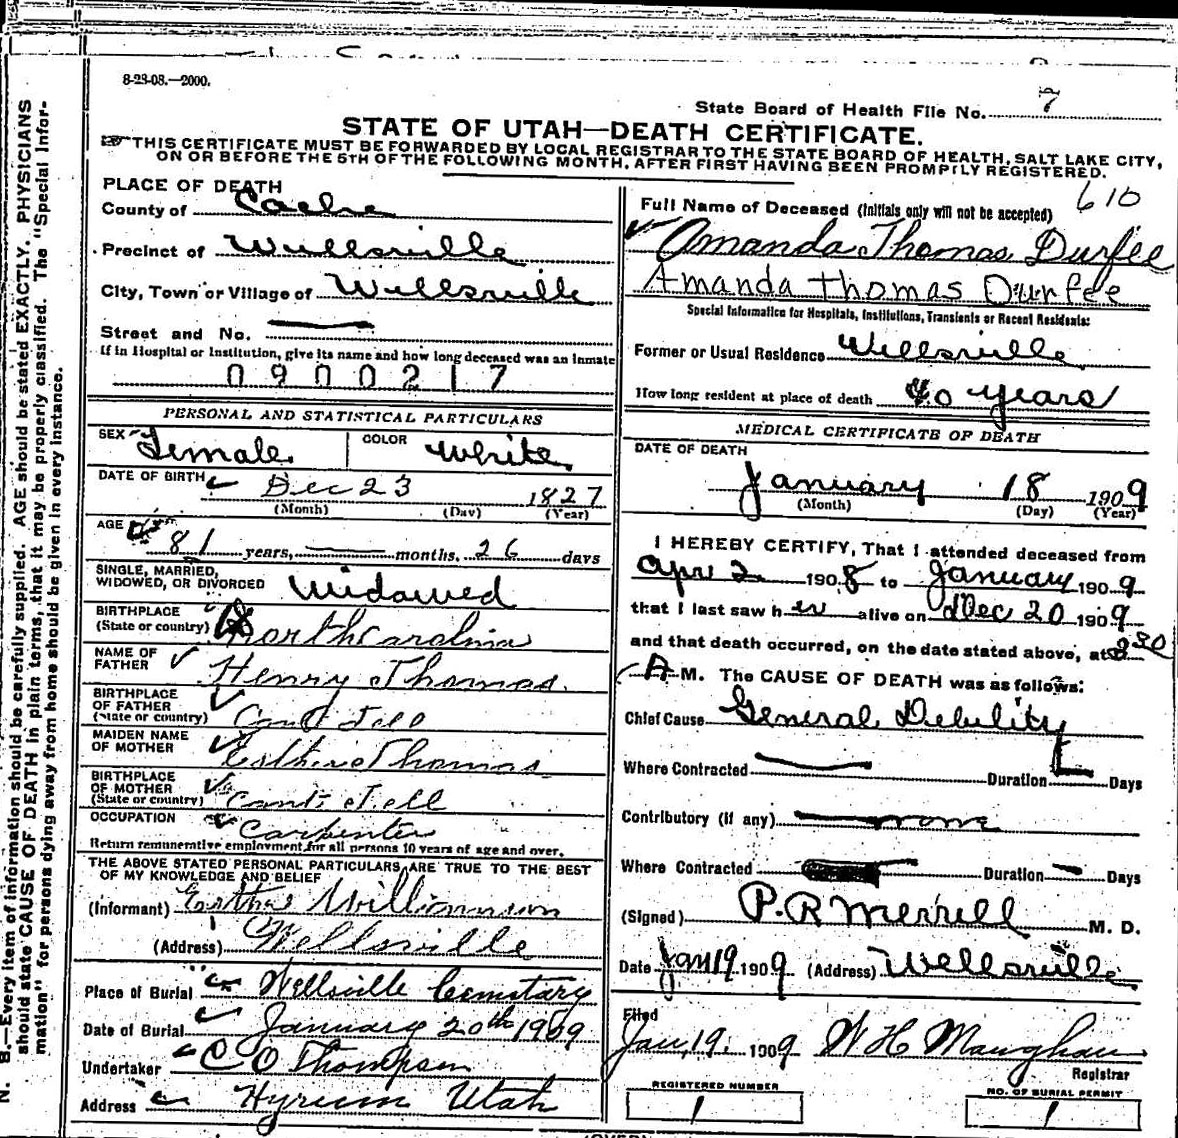 8-23-08.—2000.
State Board of Health File No. 7
STATE OF UTAH—DEATH CERTIFICATE.
THIS CERTIFICATE MUST BE FORWARDED BY LOCAL REGISTRAR TO THE STATE BOARD OF HEALTH, SALT LAKE CITY,
ON OR BEFORE THE 5TH OF THE FOLLOWING MONTH, AFTER FIRST HAVING BEEN PROMPTLY REGISTERED.
N. B.—Every item of information should be carefully supplied. AGE should be stated EXACTLY. PHYSICIANS
should state CAUSE OF DEATH in plain terms, that it may be properly classified. The "Special Infor-
mation" for persons dying away from home should be given in every instance.
PLACE OF DEATH
County of Cache
Precinct of Wellsville
City, Town or Village of Wellsville
Street and No.
If in Hospital or Institution, give its name and how long deceased was an inmate
0900217
PERSONAL AND STATISTICAL PARTICULARS
SEX Female COLOR White
DATE OF BIRTH Dec 23 1827
(Month) (Day) (Year)
AGE 81 years, months, 26 days
SINGLE, MARRIED,
WIDOWED, OR DIVORCED Widowed
BIRTHPLACE
(State or country) North Carolina
NAME OF
FATHER Henry Thomas
BIRTHPLACE
OF FATHER
(State or country) Cant Tell
MAIDEN NAME
OF MOTHER Esther Thomas
BIRTHPLACE
OF MOTHER
(State or country) Cant Tell
OCCUPATION Carpenter
Return remunerative employment for all persons 10 years of age and over.
THE ABOVE STATED PERSONAL PARTICULARS ARE TRUE TO THE BEST
OF MY KNOWLEDGE AND BELIEF
(Informant) Esther Williamson
(Address) Wellsville
Place of Burial Wellsville Cemetary
Date of Burial January 20th 1909
Undertaker C O Thompson
Address Hyrum Utah
610
Full Name of Deceased (Initials only will not be accepted)
Amanda Thomas Durfee
Amanda Thomas Durfee
Special Information for Hospitals, Institutions, Transients or Recent Residents:
Former or Usual Residence Wellsville
How long resident at place of death 40 years
MEDICAL CERTIFICATE OF DEATH
DATE OF DEATH
January 18 1909
(Month) (Day) (Year)
I HEREBY CERTIFY, That I attended deceased from
Apr 2 1908 to January 1909
that I last saw her alive on Dec 20 1909
and that death occurred, on the date stated above, at 830
A M. The CAUSE OF DEATH was as follows:
Chief Cause General Debility
Where Contracted Duration Days
Contributory (if any) none
Where Contracted Duration Days
(Signed) P. R Merrell M. D.
Date Jan 19 1909 (Address) Wellsville
Filed
Jan, 19. 1909 W H Maughan
Registrar
REGISTERED NUMBER
1
NO. OF BURIAL PERMIT
1
(OVER)